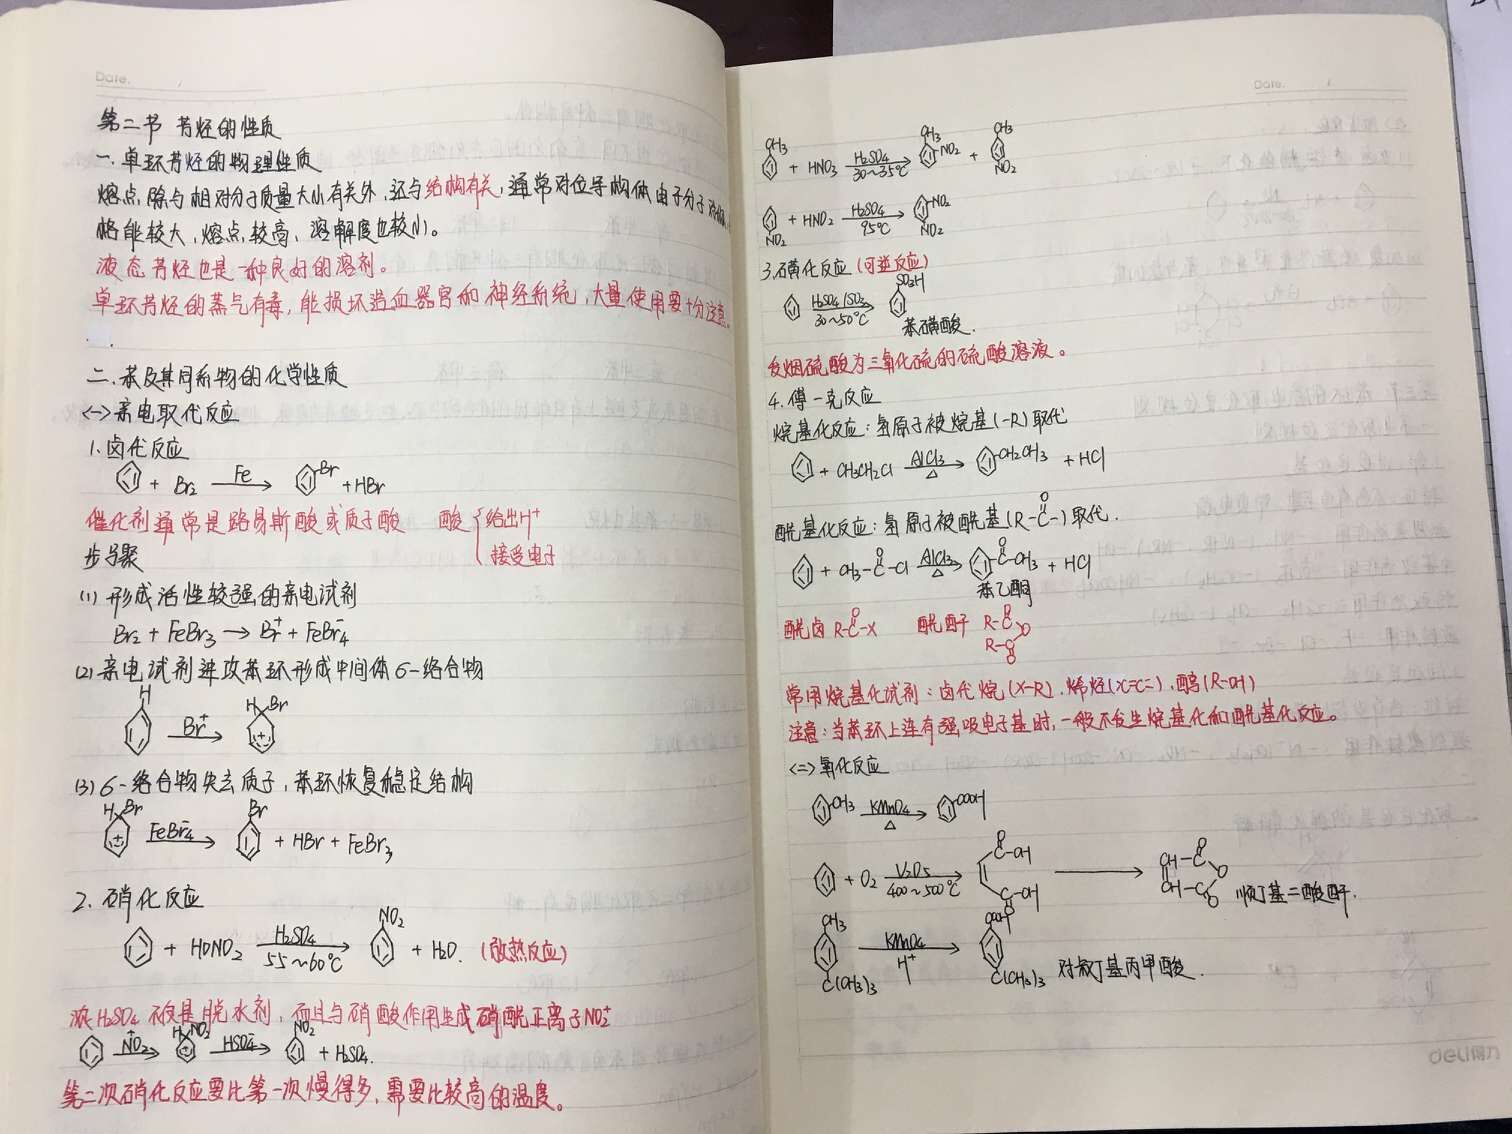 Date.
第二节 芳烃的性质
一.单环芳烃的物理性质
熔点除与相对分子质量大小有关外,还与结构有关,通常对位异构体由于分子
格能较大,熔点较高,溶解度也较小。
液态芳烃也是一种良好的溶剂。
单环芳烃的蒸气有毒,能损坏造血器官和神经系统,大量使用要十分注意。
二.苯及其同系物的化学性质
<一>亲电取代反应
1.卤代反应
+ Br₂ Fe→ Br +HBr
催化剂通常是路易斯酸或质子酸 酸{给出H⁺
接受电子
步骤
(1) 形成活性较强的亲电试剂
Br₂ + FeBr₃ → Br⁺ + FeBr₄⁻
(2) 亲电试剂进攻苯环形成中间体σ-络合物
H Br⁺→ H Br +
(3) σ-络合物失去质子,苯环恢复稳定结构
H Br + FeBr₄⁻→ Br + HBr + FeBr₃
2.硝化反应
+ HONO₂ H₂SO₄ 55~60℃→ NO₂ + H₂O. (放热反应)
浓H₂SO₄不仅是脱水剂,而且与硝酸作用生成硝酰正离子NO₂⁺
NO₂⁺→ H NO₂ + HSO₄⁻→ NO₂ + H₂SO₄.
第二次硝化反应要比第一次慢得多,需要比较高的温度。
Date.
CH₃ + HNO₃ H₂SO₄ 30~35℃→ CH₃ NO₂ + CH₃ NO₂
NO₂ + HNO₂ H₂SO₄ 95℃→ NO₂ NO₂
3.磺化反应(可逆反应)
H₂SO₄/SO₃ 30~50℃→ SO₃H
苯磺酸.
发烟硫酸为三氧化硫的硫酸溶液。
4.傅一克反应
烷基化反应:氢原子被烷基(-R)取代
+ CH₃CH₂Cl AlCl₃ △→ CH₂CH₃ + HCl
酰基化反应:氢原子被酰基(R-C(=O)-)取代.
+ CH₃-C(=O)-Cl AlCl₃ △→ C(=O)-CH₃ + HCl
苯乙酮
酰卤 R-C(=O)-X 酰酐 R-C(=O)-O-C(=O)-R
常用烷基化试剂:卤代烷(X-R).烯烃(C=C).醇(R-OH)
注意:当苯环上连有强吸电子基时,一般不发生烷基化和酰基化反应。
<二>氧化反应
CH₃ KMnO₄ △→ COOH
+ O₂ V₂O₅ 400~500℃→ C(=O)-OH C(=O)-OH → CH-C(=O) O CH-C(=O) 顺丁基二酸酐.
CH₃ C(CH₃)₃ KMnO₄ H⁺→ COOH C(CH₃)₃ 对叔丁基丙甲酸.
deli得力